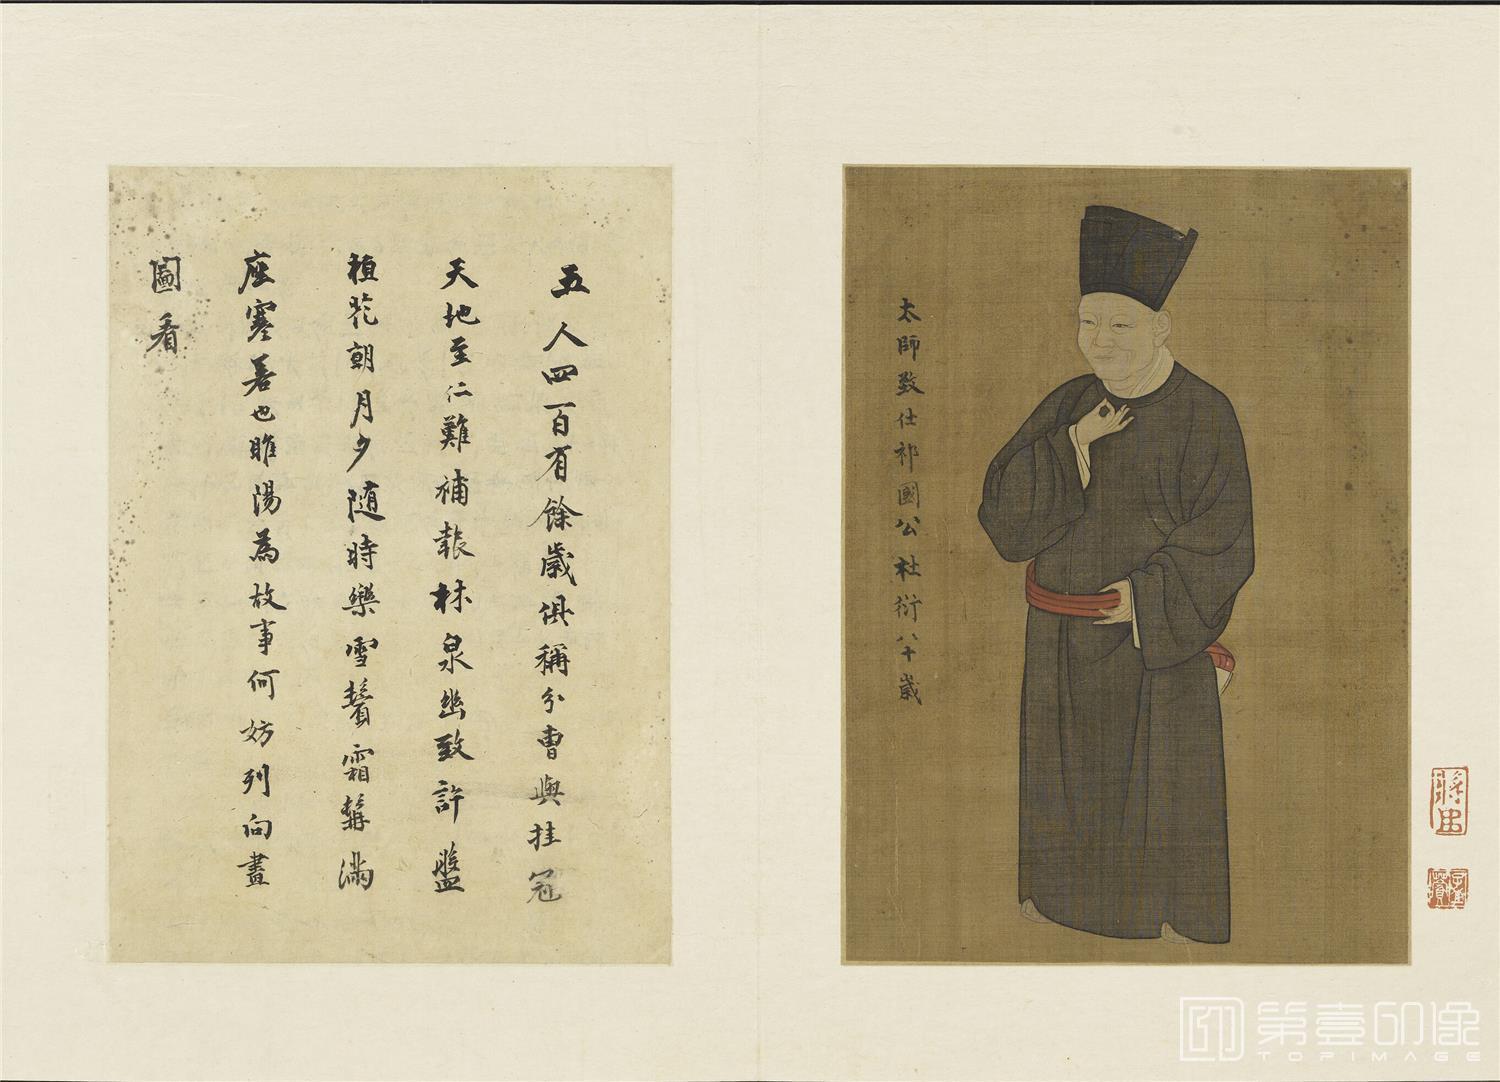 太師致仕祁國公杜衍八十歲
五人四百有餘歲俱稱分曹與挂冠
天地至仁難補報林泉幽致許盤
桓花朝月夕隨時樂雪鬢霜髯滿
座寒若也睢陽為故事何妨列向畫
圖看
第壹印像
TOPIMAGE